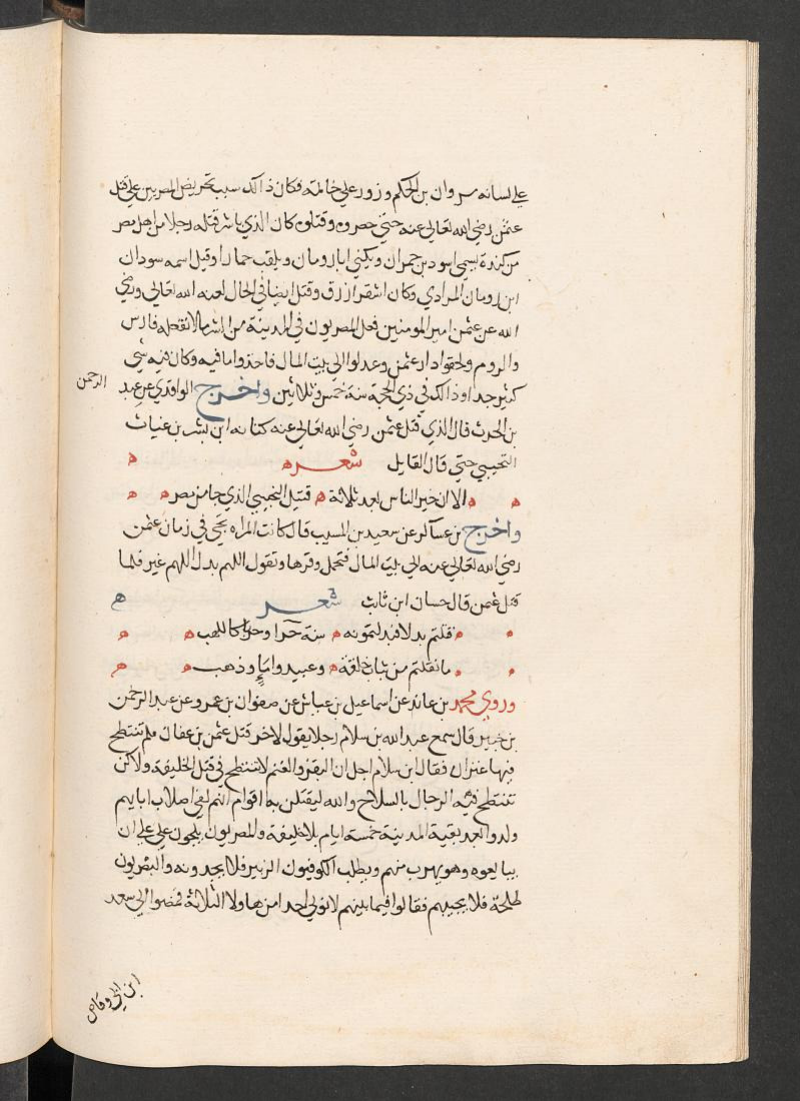 علي لسانه مروان بن الحكم وزور علي خاتمه فكان ذالك سبب تحريض المصريين علي قتل
عثمن رضي الله تعالي عنه حتي حصروه وقتلوه كان الذي باشر قتله رجلا من اهل مصر
من كندة يسمي اسود بن حمران ويكني ابا رومان ويلقب حمارا وقيل اسمه سودان
ابن رومان المرادي وكان اشقر ازرق وقتل ايضا في الحال لعنه الله تعالي ورضي
الله عن عثمن امير المومنين فعل المصريون في المدينة من الشر ما لا تفعله فارس
والروم ولحقوا دار عثمن وعدلوا الي بيت المال فاخذوا ما فيه وكان فيه شي
كثير جدا وذالك في ذي الحجة سنة خمس وثلاثين واخرج الواقدي عن عبد الرحمن
بن الحرث قال الذي قتل عثمن رضي الله تعالي عنه كنانه ابن بشر بن غياث
التجيبي حتي قال القايل شعر
الا ان خير الناس بعد ثلاثة قتيل التجيبي الذي جا من مصر
واخرج بن عساكر عن سعيد بن المسيب قال كانت المراه تجي في زمان عثمن
رضي الله تعالي عنه الي بيت المال فتحمل وقرها وتقول اللهم بدل اللهم غير فلما
قتل عثمن قال حسان ابن ثابت شعر
قلتم بدلا فبدلتمونه سنة حرا وحربا كاللهب
ما نقلتم من ثياب خلقة وعبيد واماء وذهب
وروي محمد بن عائد عن اسماعيل بن عباش عن صفوان بن عمرو عن عبد الرحمن
بن جبير قال سمع عبد الله بن سلام رجلا يقول لاخر قتل عثمن بن عفان فلم تنتطح
فيها عنزان فقال ابن سلام اجل ان البقر والغنم لا تنتطح في قتل الخليفة ولاكن
تنتطح فيه الرجال بالسلاح والله ليقتلن به اقوام انهم لفي اصلاب ابايهم
ولدوا بعد بقية المدينة خمسة ايام بلا خليفة والمصريون يلجون علي علي ان
يبايعوه وهو يهرب منهم ويطلب الكوفيون الزبير فلا يجدونه والبصريون
طلحة فلا يجيبهم فقالوا فيما بينهم لا نولي احدا من هاولا الثلاثة فمضوا الي سعد
ابن ابي وقاص